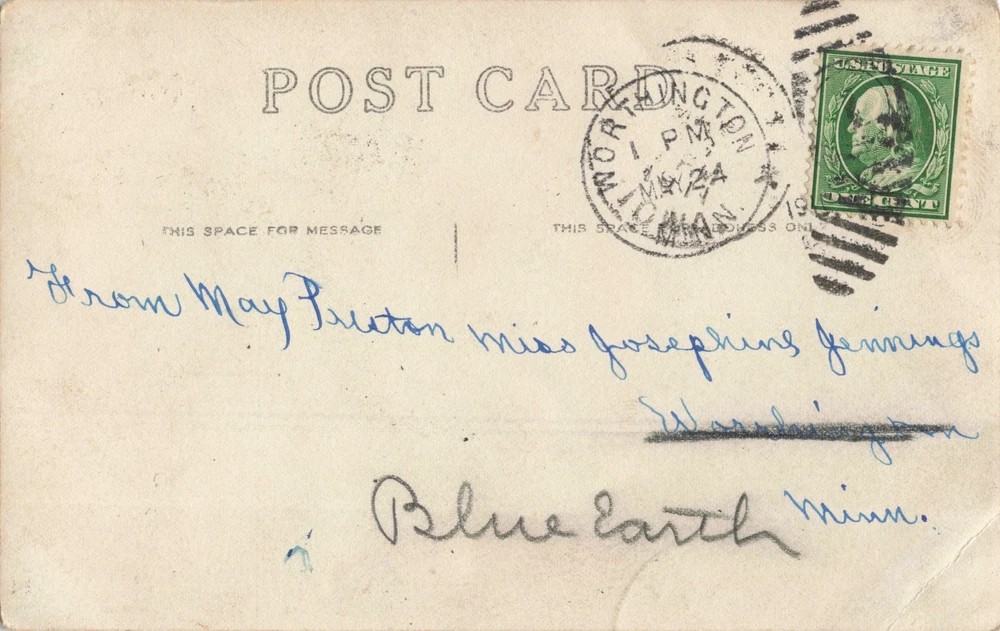 POST CARD
U.S. POSTAGE
ONE CENT
WORTHINGTON
1 PM
MAY 24
MINN.
19
THIS SPACE FOR MESSAGE
THIS SPACE FOR ADDRESS ONLY
From May Preston
Miss Josephine Jennings
Worthington
Blue Earth
Minn.